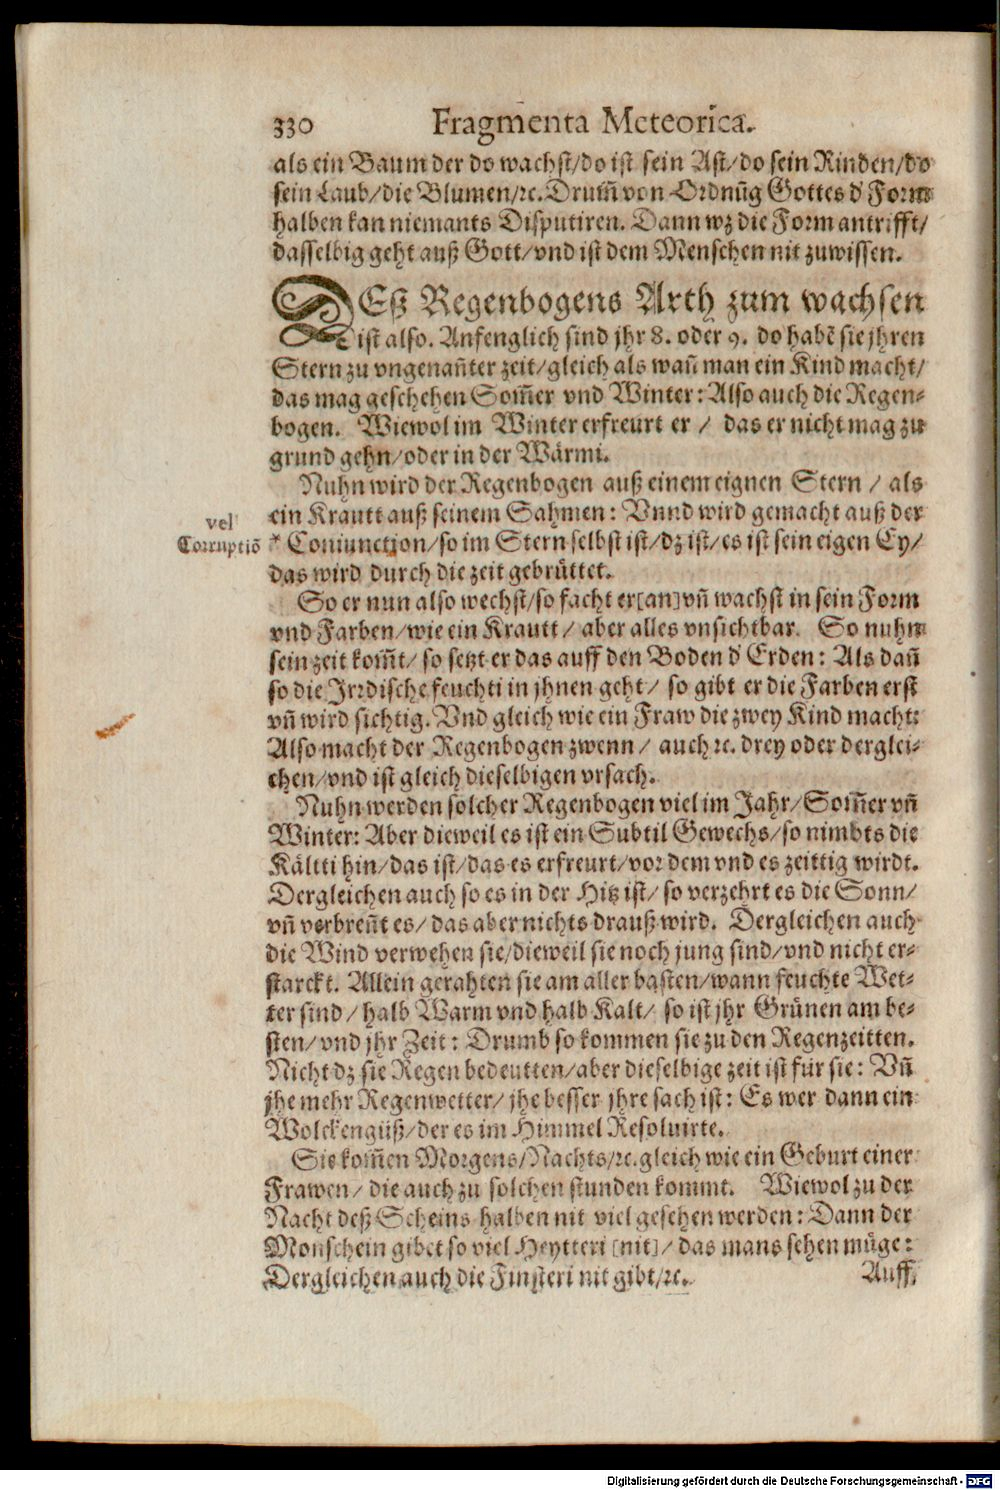 330 Fragmenta Meteorica.
als ein Baum der do wachst/do ist sein Ast/do sein Rinden/do
sein Laub/die Blumen/ꝛc. Drum̃ von Ordnũg Gottes d' Form
halben kan niemants Disputiren. Dann wz die Form antrifft/
dasselbig geht auß Gott/vnd ist dem Menschen nit zuwissen.
DEß Regenbogens Arth zum wachsen
ist also. Anfenglich sind jhr 8. oder 9. do habẽ sie jhren
Stern zu vngenan̄ter zeit/gleich als wan̄ man ein Kind macht/
das mag geschehen Som̃er vnd Winter: Also auch die Regen-
bogen. Wiewol im Winter erfreurt er / das er nicht mag zu
grund gehn/oder in der Wärmi.
Nuhn wird der Regenbogen auß einem eignen Stern / als
ein Krautt auß seinem Sahmen: Vnnd wird gemacht auß der
vel
Corruptiõ
* Coniunction/so im Stern selbst ist/dz ist/es ist sein eigen Ey/
das wird durch die zeit gebrüttet.
So er nun also wechst/so facht er[an]vn̄ wachst in sein Form
vnd Farben/wie ein Krautt / aber alles vnsichtbar. So nuhn
sein zeit kom̃t/ so setzt er das auff den Boden d' Erden: Als dan̄
so die Jrrdische feuchti in jhnen geht/ so gibt er die Farben erst
vn̄ wird sichtig. Vnd gleich wie ein Fraw die zwey Kind macht:
Also macht der Regenbogen zwenn / auch ꝛc. drey oder derglei-
chen/vnd ist gleich dieselbigen vrsach.
Nuhn werden solcher Regenbogen viel im Jahr/Som̃er vn̄
Winter: Aber dieweil es ist ein Subtil Gewechs/so nimbts die
Kältti hin/das ist/das es erfreurt/vor dem vnd es zeittig wirdt.
Dergleichen auch so es in der Hitz ist/ so verzehrt es die Sonn/
vn̄ verbren̄t es/ das aber nichts drauß wird. Dergleichen auch
die Wind verwehen sie/dieweil sie noch jung sind/vnd nicht er-
starckt. Allein gerahten sie am aller basten/wann feuchte Wet-
ter sind / halb Warm vnd halb Kalt/ so ist jhr Grünen am be-
sten/ vnd jhr Zeit: Drumb so kommen sie zu den Regenzeitten.
Nicht dz sie Regen bedeutten/aber dieselbige zeit ist für sie: Vn̄
jhe mehr Regenwetter/ jhe besser jhre sach ist: Es wer dann ein
Wolckengüß/der es im Himmel Resoluirte.
Sie kom̃en Morgens/Nachts/ꝛc. gleich wie ein Geburt einer
Frawen / die auch zu solchen stunden kommt. Wiewol zu der
Nacht deß Scheins halben nit viel gesehen werden: Dann der
Monschein gibet so viel Heytteri [nit]/ das mans sehen müge:
Dergleichen auch die Finsteri nit gibt/ꝛc. Auff
Digitalisierung gefördert durch die Deutsche Forschungsgemeinschaft - DFG